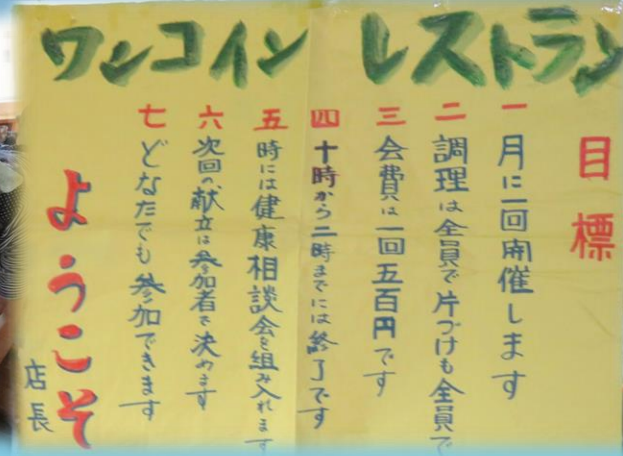 ワンコイン レストラン
目標
一 月に一回開催します
二 調理は全員で片づけも全員で
三 会費は一回五百円です
四 十時から二時までには終了です
五 時には健康相談会を組み入れます
六 次回の献立は参加者で決めます
七 どなたでも参加できます
ようこそ
店長